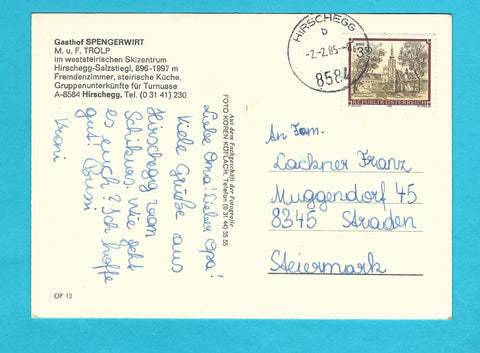 Gasthof SPENGERWIRT
M. u. F. TROLP
im weststeirischen Skizentrum
Hirschegg-Salzstiegl, 896-1997 m
Fremdenzimmer, steirische Küche,
Gruppenunterkünfte für Turnusse
A-8584 Hirschegg, Tel. (0 31 41) 230
Liebe Oma! Lieber Opa!
Viele Grüße aus
Hirschegg vom
Schikurs. Wie geht
es euch? Ich hoffe
gut! Bussi
Vroni
Aus dem Fachgeschäft der Fotografie
FOTO KOREN KÖFLACH, Telefon (0 31 44) 35 55
OF 13
HIRSCHEGG
b
-2.-2.85-
8584
REPUBLIK ÖSTERREICH
An Fam.
Lackner Franz
Muggendorf 45
8345 Straden
Steiermark